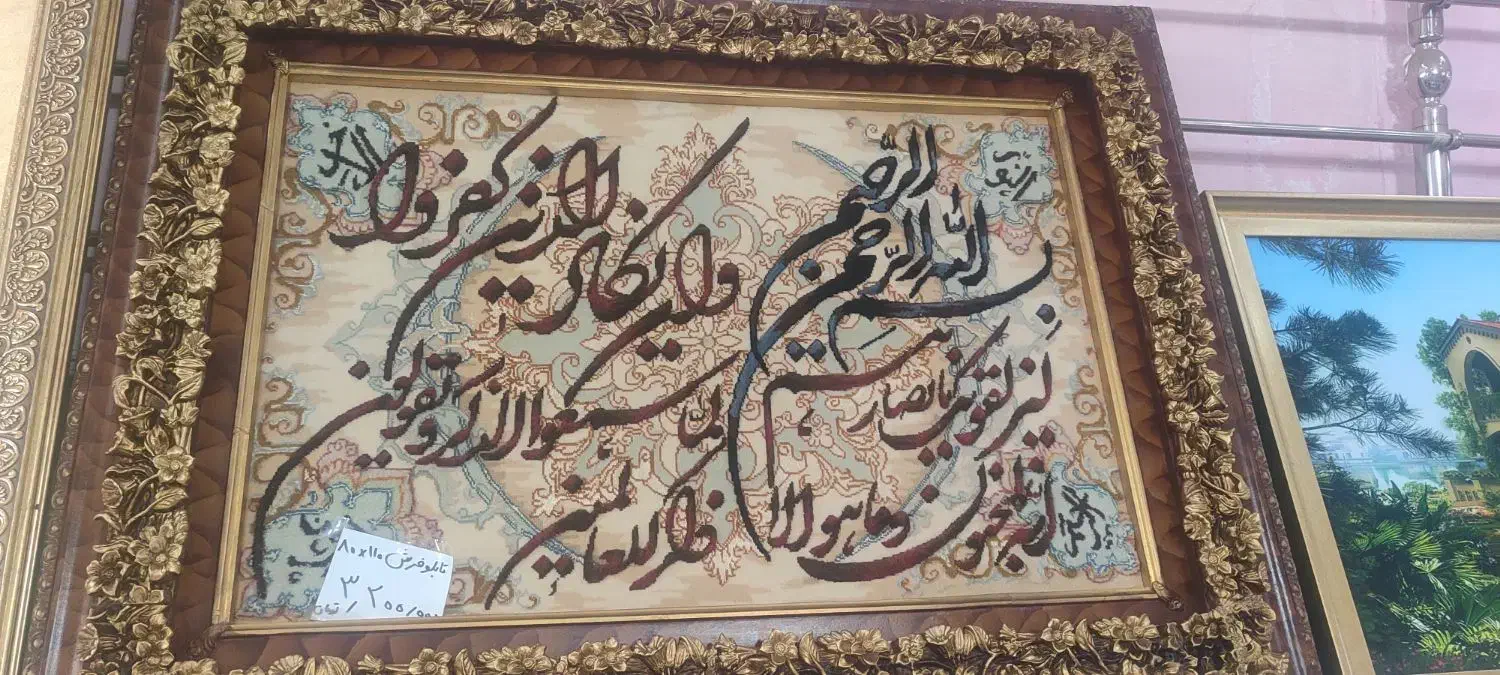 بسم الله الرحمن الرحیم
وان یکاد الذین کفروا
لیزلقونک بابصارهم
لما سمعوا الذکر ویقولون
انه لمجنون وما هو الا
ذکر للعالمین
تابلو فرش ۸۰x۱۱۰
۳/۲۰۰/۰۰۰ تومان